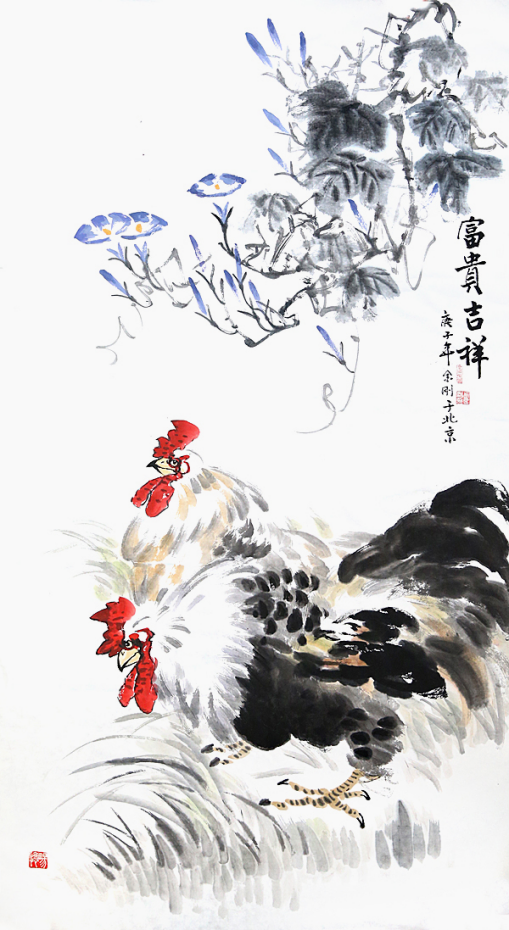 富貴吉祥
庚子年余刚于北京